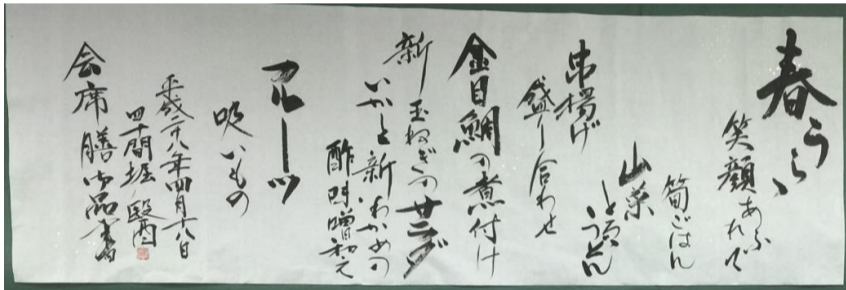 春うらら
笑顔あふれて
筍ごはん
山菜
うどん
串揚げ
盛り合わせ
金目鯛の煮付け
新玉ねぎのサラダ
いかと新わかめの
酢味噌和え
フルーツ
吸いもの
平成二十八年四月十八日
四十間堀ノ医酉
会席膳御品書